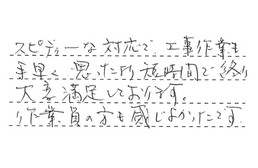 スピディーな対応で、工事作業も
手早く思ったより短時間で終り
大変満足しております。
作業員の方も感じよかったです。